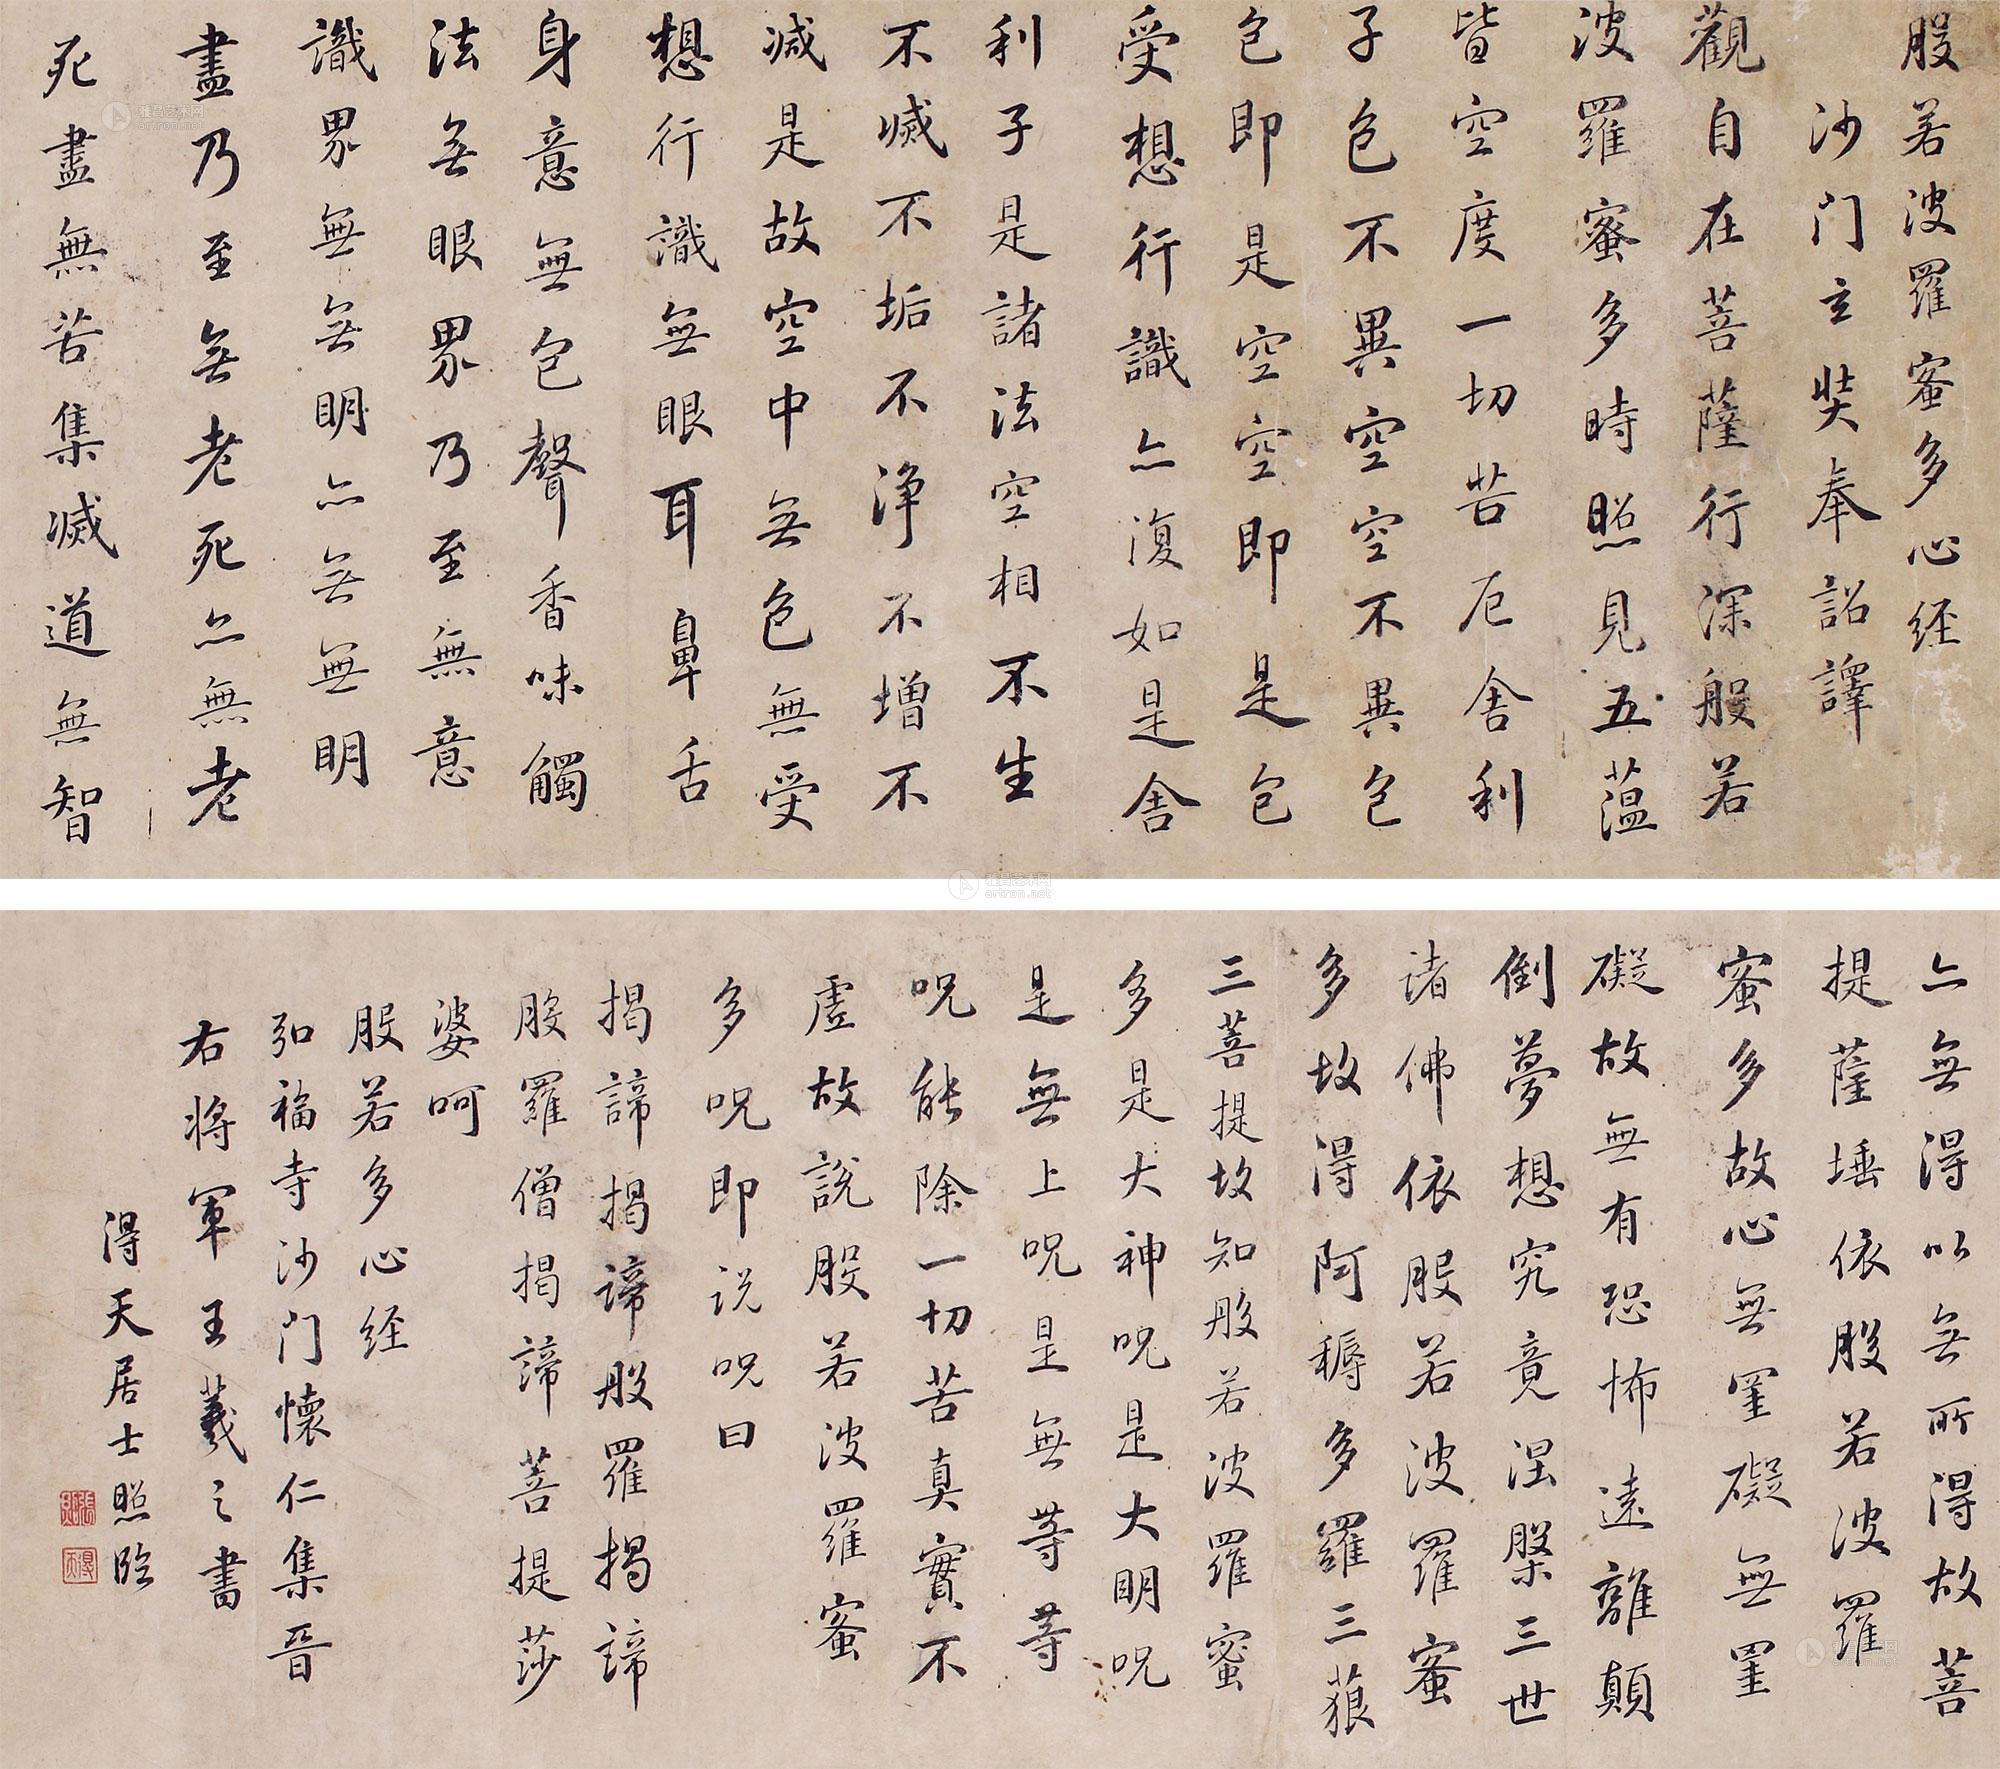 般若波羅蜜多心経
沙門玄奘奉詔譯
觀自在菩薩行深般若
波羅蜜多時照見五蕰
皆空度一切苦厄舍利
子色不異空空不異色
色即是空空即是色
受想行識亦復如是舍
利子是諸法空相不生
不滅不垢不淨不增不
減是故空中無色無受
想行識無眼耳鼻舌
身意無色聲香味觸
法無眼界乃至無意
識界無無明亦無無明
盡乃至無老死亦無老
死盡無苦集滅道無智
亦無得以無所得故菩
提薩埵依般若波羅
蜜多故心無罣礙無罣
礙故無有恐怖遠離顛
倒夢想究竟涅槃三世
諸佛依般若波羅蜜
多故得阿耨多羅三藐
三菩提故知般若波羅蜜
多是大神呪是大明呪
是無上呪是無等等
呪能除一切苦真實不
虛故說般若波羅蜜
多呪即説呪曰
揭諦揭諦般羅揭諦
般羅僧揭諦菩提莎
婆呵
般若多心経
弘福寺沙門懷仁集晉
右將軍王羲之書
得天居士照臨
張照
得天
雅昌艺术网
artron.net
雅昌艺术网
artron.net
雅昌艺术网
artron.net